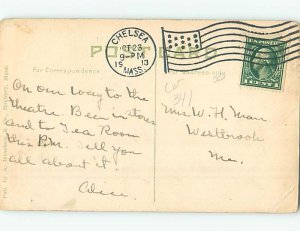 CHELSEA
OCT 23
9-PM
1913
MASS.
POST CARD
For Correspondence
On our way to the
theatre. Been in stores
and to Tea Room
this P.M. Tell you
all about it.
Alice.
Mrs. W. H. Marr
Westbrook
Me.